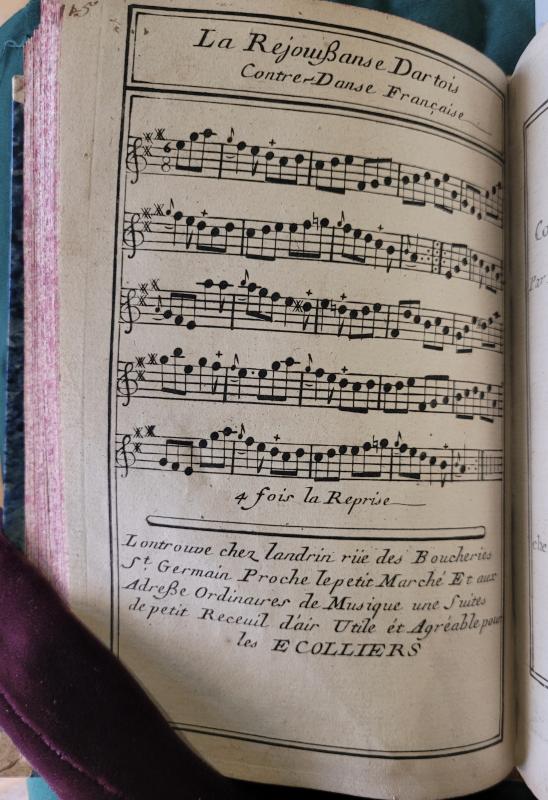 La Rejouißanse Dartois
Contre-Danse Française
4 fois la Reprise
Lontrouve chez landrin rüe des Boucheries
St. Germain Proche le petit Marché Et aux
Adreße Ordinaires de Musique une Suites
de petit Receuil d'air Utile ét Agréable pour
les ECOLLIERS